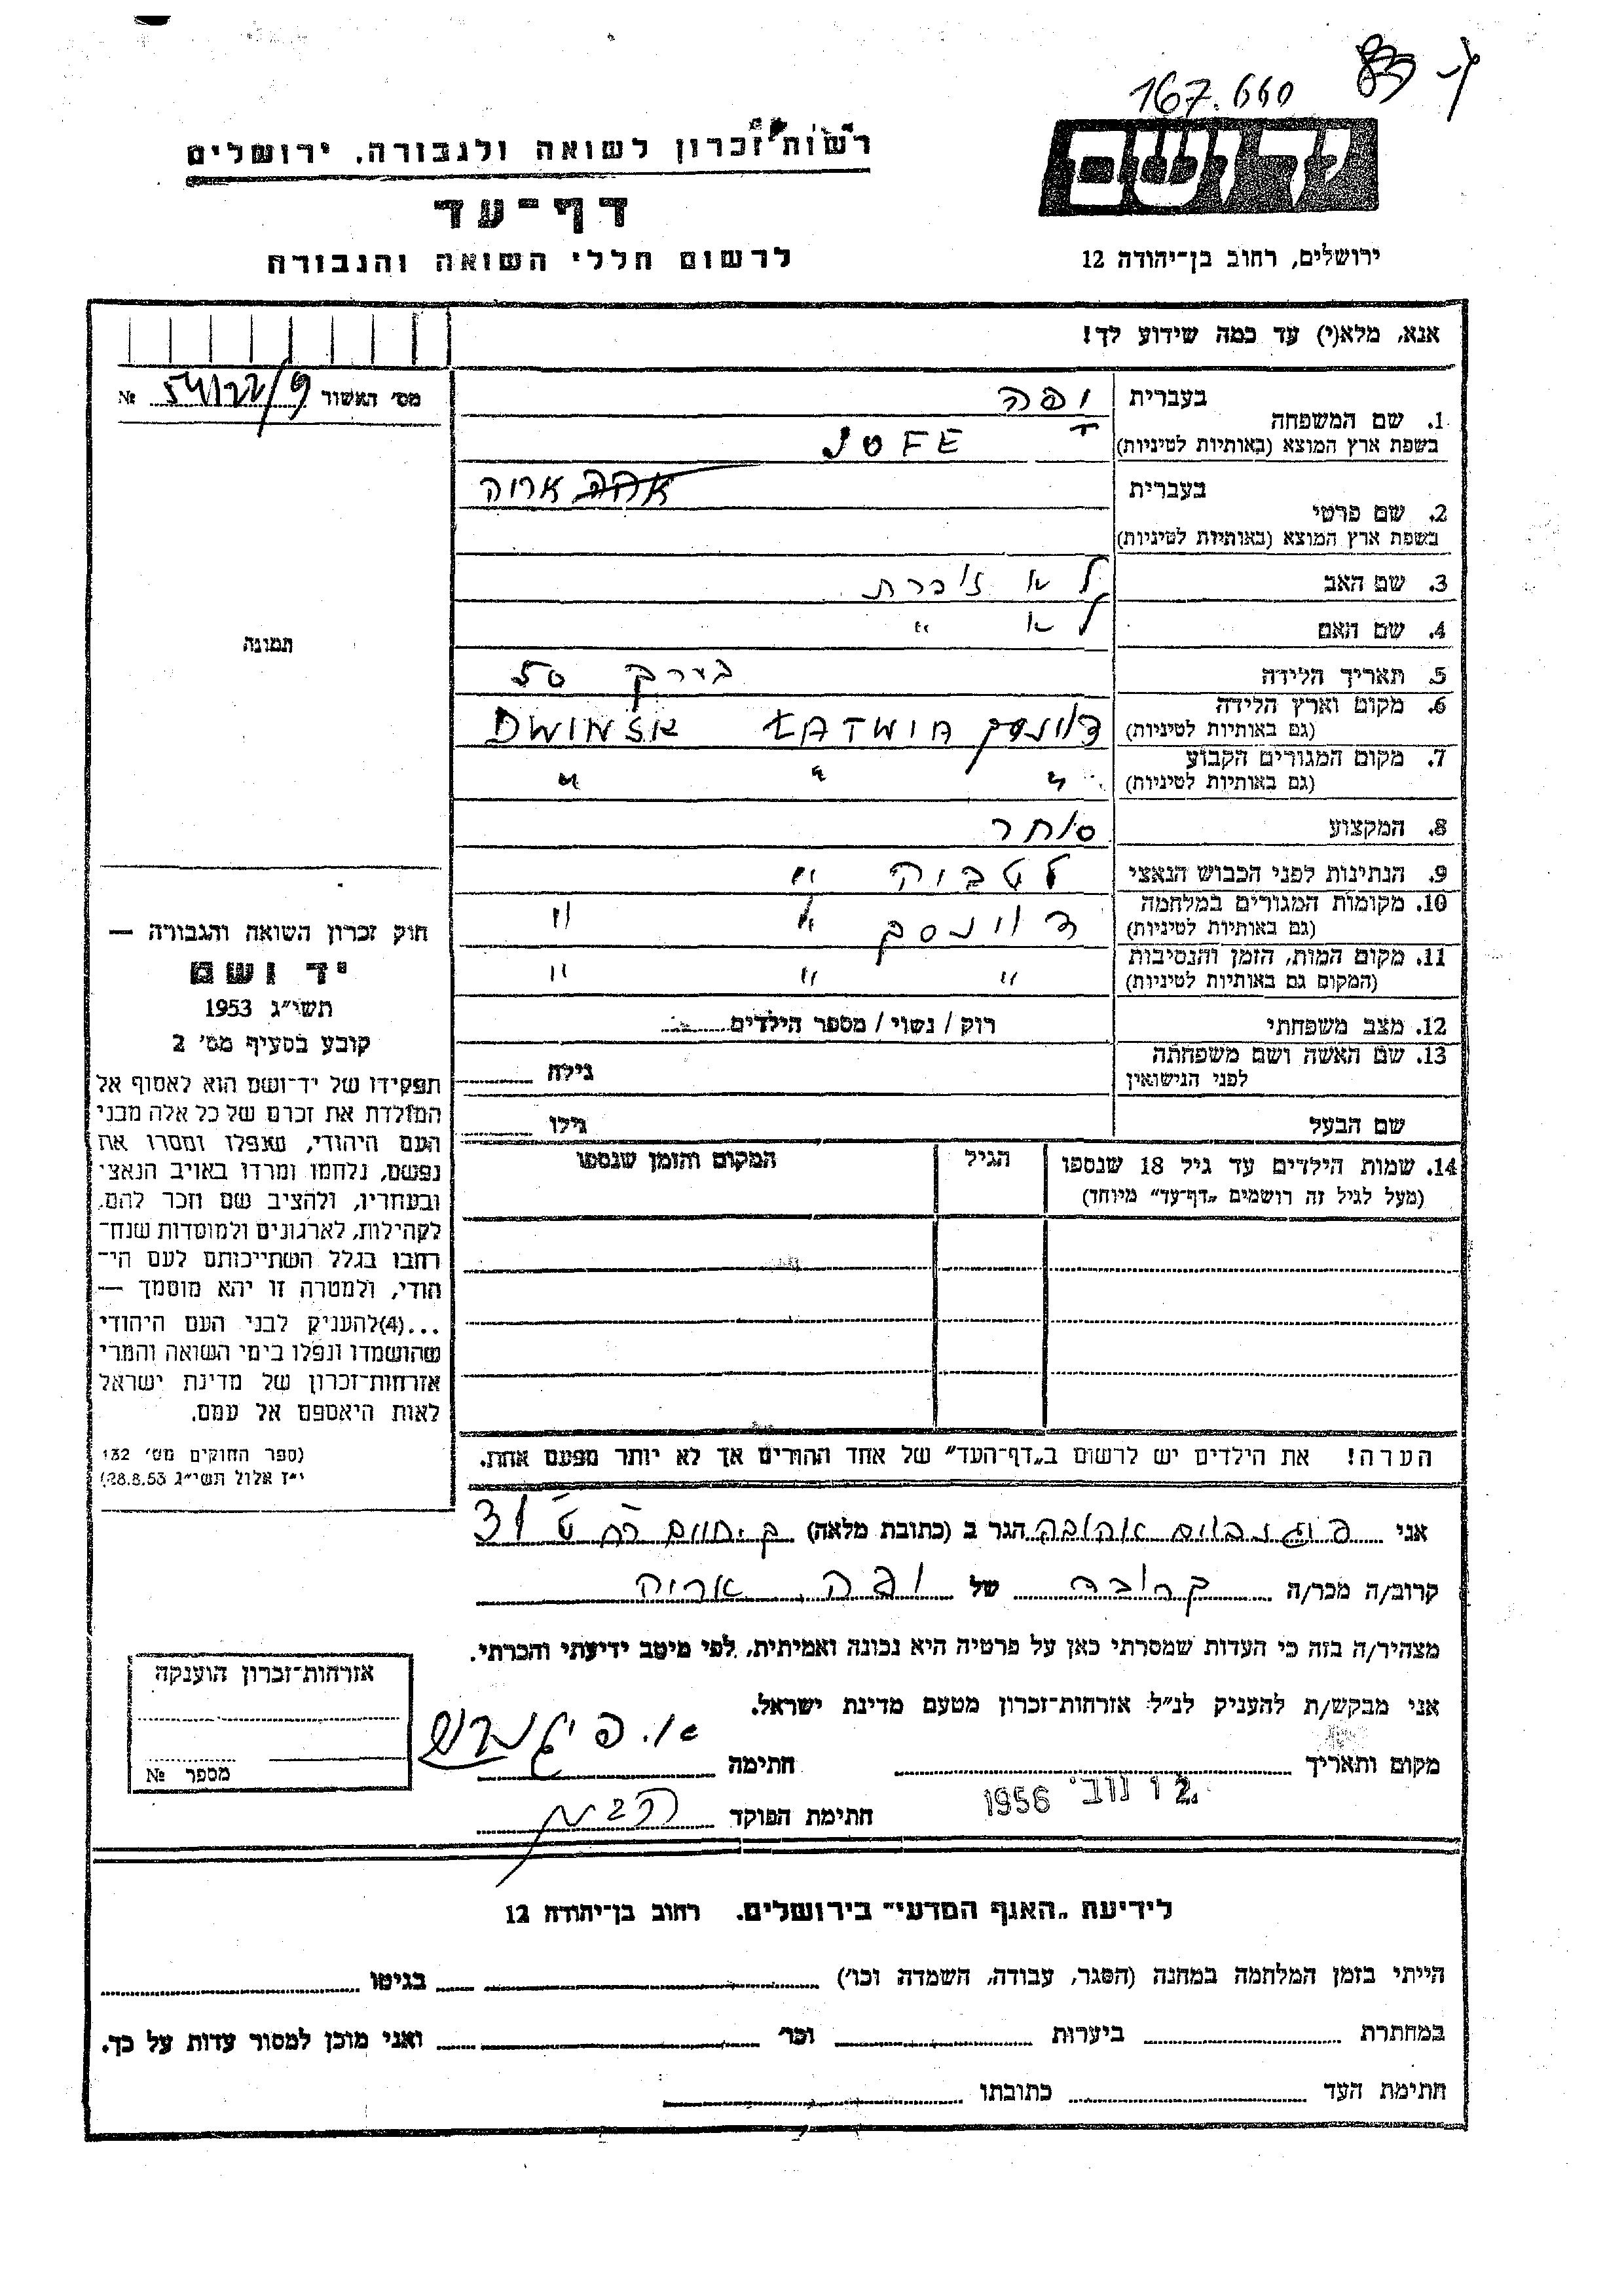 167.660
רשות זכרון לשואה ולגבורה, ירושלים
יד ושם
דף־עד
לרשום חללי השואה והגבורה
ירושלים, רחוב בן־יהודה 12
אנא, מלא(י) עד כמה שידוע לך!
מס' האשור № 54/22/9
1. שם המשפחה בעברית יופה
בשפת ארץ המוצא (באותיות לטיניות) JOFE
2. שם פרטי בעברית אריה
בשפת ארץ המוצא (באותיות לטיניות)
3. שם האב לא זוכרת
4. שם האם לא "
5. תאריך הלידה בערך 50
6. מקום וארץ הלידה (גם באותיות לטיניות) דווינסק ŁATWIA DWINSK
7. מקום המגורים הקבוע (גם באותיות לטיניות) " " "
8. המקצוע סוחר
9. הנתינות לפני הכבוש הנאצי לטביה "
10. מקומות המגורים במלחמה (גם באותיות לטיניות) דווינסק " "
11. מקום המות, הזמן והנסיבות (המקום גם באותיות לטיניות) " " "
12. מצב משפחתי רוק / נשוי / מספר הילדים
13. שם האשה ושם משפחתה לפני הנישואין גילה
שם הבעל גילו
14. שמות הילדים עד גיל 18 שנספו הגיל המקום והזמן שנספו
(מעל לגיל זה רושמים „דף־עד" מיוחד)
תמונה
חוק זכרון השואה והגבורה —
יד ושם
תשי"ג 1953
קובע בסעיף מס' 2
תפקידו של יד־ושם הוא לאסוף אל
המולדת את זכרם של כל אלה מבני
העם היהודי, שנפלו ומסרו את
נפשם, נלחמו ומרדו באויב הנאצי
ובעוזריו, ולהציב שם וזכר להם,
לקהילות, לארגונים ולמוסדות שנח־
רבו בגלל השתייכותם לעם הי־
הודי, ולמטרה זו יהא מוסמך —
...(4)להעניק לבני העם היהודי
שהושמדו ונפלו בימי השואה והמרי
אזרחות־זכרון של מדינת ישראל
לאות היאספם אל עמם.
(ספר החוקים מס' 132
י"ז אלול תשי"ג 28.8.53)
הערה! את הילדים יש לרשום ב„דף־העד" של אחד ההורים אך לא יותר מפעם אחת.
אני אהובה הגר ב (כתובת מלאה) ק. חיים 31
קרוב/ה מכר/ה קרובה של יופה אריה
מצהיר/ה בזה כי העדות שמסרתי כאן על פרטיה היא נכונה ואמיתית, לפי מיטב ידיעתי והכרתי.
אני מבקש/ת להעניק לנ"ל אזרחות־זכרון מטעם מדינת ישראל.
מקום ותאריך חתימה
נוב' 1956
חתימת הפוקד
אזרחות־זכרון הוענקה
מספר №
לידיעת „האגף המדעי" בירושלים. רחוב בן־יהודה 12
הייתי בזמן המלחמה במחנה (הסגר, עבודה, השמדה וכו') בגיטו
במחתרת ביערות וכו' ואני מוכן למסור עדות על כך.
חתימת העד כתובתו